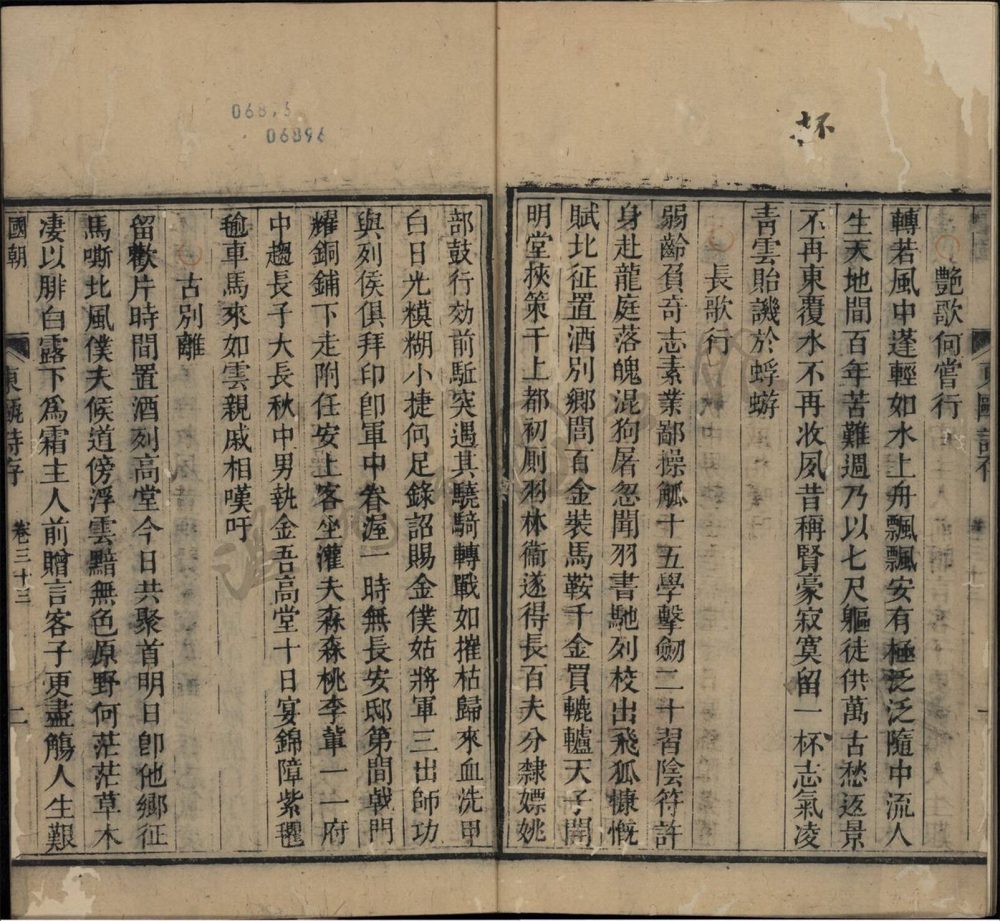 杯
艷歌何嘗行
轉若風中蓬輕如水上舟飄飄安有極泛泛隨中流人
生天地間百年苦難週乃以七尺軀徒供萬古愁返景
不再東覆水不再收夙昔稱賢豪寂寞留一杯志氣凌
靑雲貽譏於蜉蝣
長歌行
弱齡負奇志素業鄙操觚十五學擊劒二十習陰符許
身赴龍庭落魄混狗屠忽聞羽書馳列校出飛狐慷慨
賦北征置酒別鄉閭百金裝馬鞍千金買轆轤天子開
明堂挾策干上都初厠羽林衞遂得長百夫分隸嫖姚
06896
部鼓行効前駈突遇其驍騎轉戰如摧枯歸來血洗甲
白日光模糊小捷何足錄詔賜金僕姑將軍三出師功
與列侯俱拜印卽軍中眷渥一時無長安邸第間戟門
耀銅鋪下走附任安上客坐灌夫森森桃李輩一一府
中趨長子大長秋中男執金吾高堂十日宴錦障紫氍
毺車馬來如雲親戚相嘆吁
古別離
留歡片時間置酒列高堂今日共聚首明日卽他鄉征
馬嘶北風僕夫候道傍浮雲黯無色原野何茫茫草木
凄以腓白露下爲霜主人前贈言客子更盡觴人生艱
國朝 東甌詩存 卷三十三 二